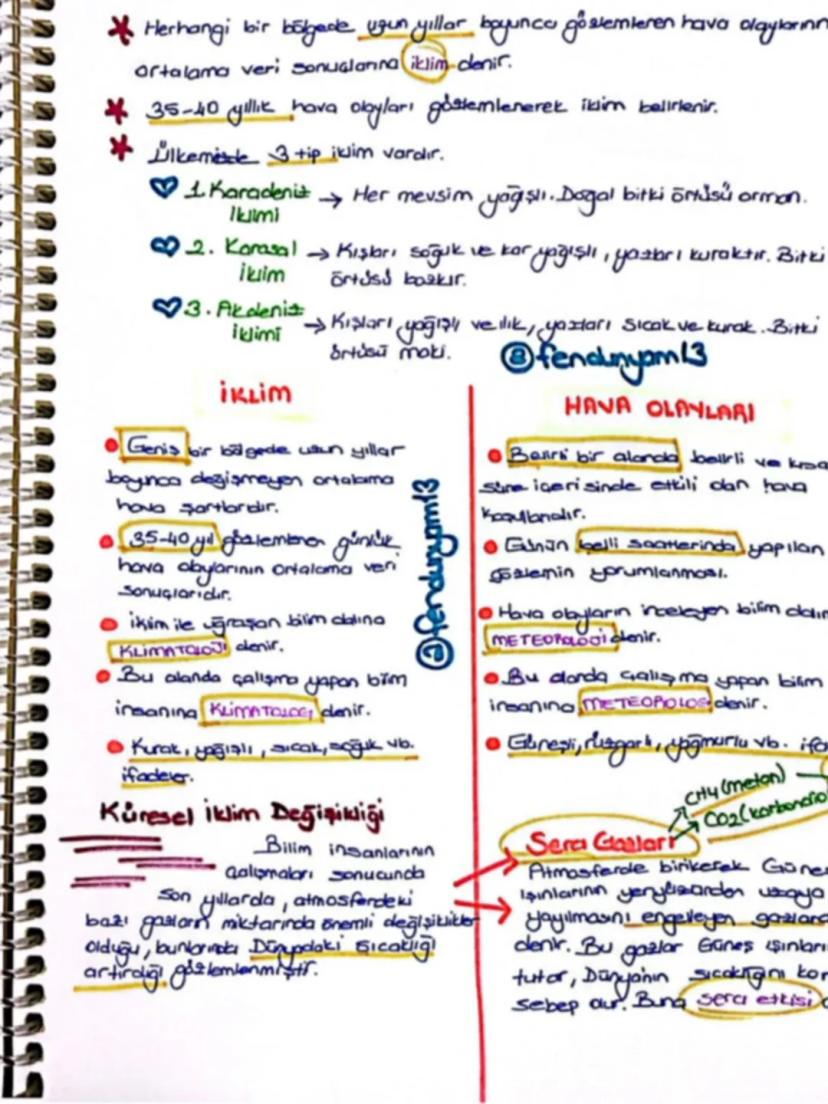 Herhangi bir bölgede uzun yıllar boyunca gözlemlenen hava olaylarının
ortalama veri sonuçlarına iklim denir.
35-40 yıllık hava olayları gözlemlenerek iklim belirlenir.
Ülkemizde 3 tip iklim vardır.
1. Karadeniz → Her mevsim yağışlı. Doğal bitki örtüsü orman.
İklimi
2. Karasal → Kışları soğuk ve kar yağışlı, yazları kuraktır. Bitki
İklim örtüsü bozkır.
3. Akdeniz → Kışları yağışlı ve ılık, yazları sıcak ve kurak. Bitki
İklimi örtüsü maki.
@fendunyam13
İKLİM
Geniş bir bölgede uzun yıllar
boyunca değişmeyen ortalama
hava şartlarıdır.
35-40 yıl gözlemlenen günlük
hava olaylarının ortalama veri
sonuçlarıdır.
İklim ile uğraşan bilim dalına
KLİMATOLOJİ denir.
Bu alanda çalışma yapan bilim
insanına KLİMATOLOG denir.
Kurak, yağışlı, sıcak, soğuk vb.
ifadeler.
@fendunyam13
HAVA OLAYLARI
Belirli bir alanda belirli ve kısa
süre içerisinde etkili olan hava
koşullarıdır.
Günün belli saatlerinde yapılan
gözlemin yorumlanması.
Hava olayların inceleyen bilim
METEOROLOJİ denir.
Bu alanda çalışma yapan bilim
insanına METEOROLOG denir.
Güneşli, rüzgarlı, yağmurlu vb.
Küresel İklim Değişikliği
Bilim insanlarının
çalışmaları sonucunda
son yıllarda, atmosferdeki
bazı gazların miktarında önemli değişiklikler
olduğu, bunlarında Dünyadaki sıcaklığı
artırdığı gözlemlenmiştir.
CH4 (metan)
CO2 (karbondio
Sera Gazları
Atmosferde birikerek Güneş
ışınlarının yeryüzünden uzaya
yayılmasını engelleyen gazlara
denir. Bu gazlar Güneş ışınları
tutar, Dünya'nın sıcaklığını
sebep olur. Buna sera etkisi